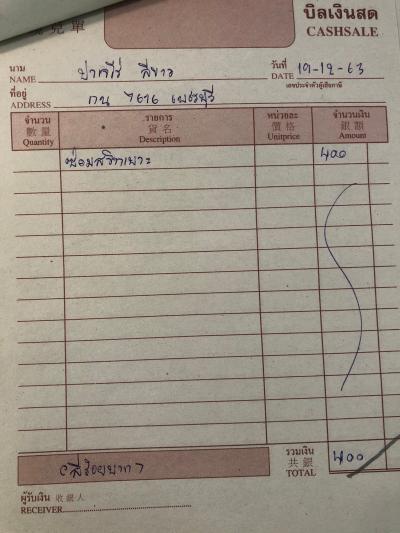 單 บิลเงินสด
CASHSALE
นาม
NAME สีขาว วันที่
DATE 19-12-63
เลขประจำตัวผู้เสียภาษี
ที่อยู่
ADDRESS กน 7616 เพชรบุรี
จำนวน รายการ หน่วยละ จำนวนเงิน
數量 貨名 價格 銀額
Quantity Description Unitprice Amount
400
รวมเงิน
共銀
TOTAL 400
(สี่ร้อยบาท)
ผู้รับเงิน 收銀人
RECEIVER